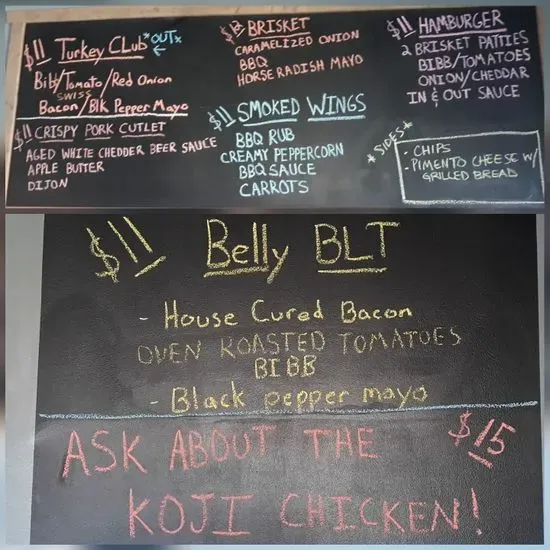 $11 Turkey CLub *OUT*
Bib/Tomato/Red Onion
SWISS
Bacon/Blk Pepper Mayo
$11 CRISPY PORK CUTLET
AGED WHITE CHEDDER BEER SAUCE
APPLE BUTTER
DIJON
$13 BRISKET
CARAMELIZED ONION
BBQ
HORSERADISH MAYO
$11 SMOKED WINGS
BBQ RUB
CREAMY PEPPERCORN
BBQ SAUCE
CARROTS
$11 HAMBURGER
2 BRISKET PATTIES
BIBB/TOMATOES
ONION/CHEDDAR
IN & OUT SAUCE
*SIDES*
- CHIPS
- PIMENTO CHEESE W/
GRILLED BREAD
$11 Belly BLT
- House Cured Bacon
OVEN ROASTED TOMATOES
BIBB
- Black pepper mayo
ASK ABOUT THE $15
KOJI CHICKEN!